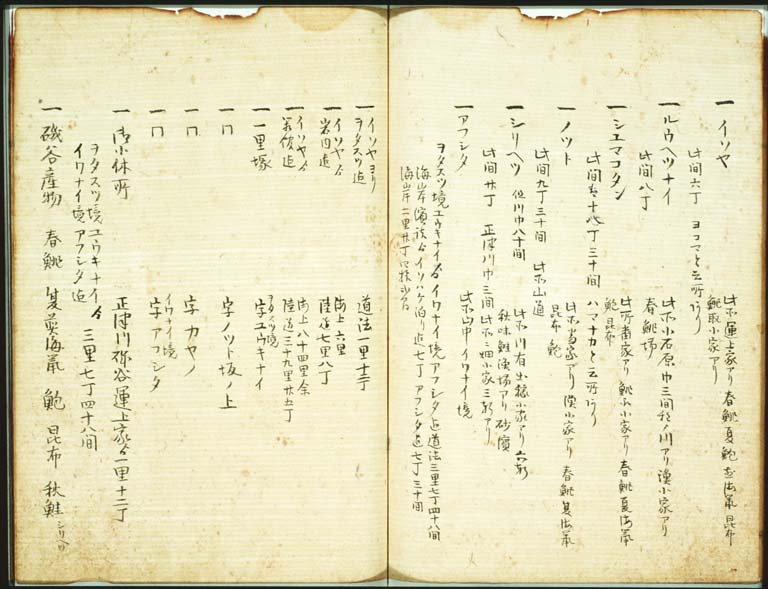 一 イソヤ
此所運上家アリ 春鯡夏鮑 海鼠 昆布
鯡取小家アリ
此間六丁 ヨコマと云所アリ
一 ルウヘツナイ
此所小石原巾三間程ノ川アリ漁小家アリ
春鯡場
此間八丁
一 シユマコタン
此所番家アリ 鯡取小家アリ 春鯡夏海鼠
鮑 昆布
此間 丁三十間 ハマナカと云所アリ
一 ノツト
此所 家アリ 漁小家アリ 春鯡夏海鼠
昆布 鮑
此間九丁三十間 此所山道
一 シリヘツ 但川巾八十間
此所川有 出稼小家アリ 六軒
秋味鮭漁場アリ 砂濱
此間廿丁 正津川巾三間 此所ニ 小家三軒アリ
一 アフシタ
此所山中イワナイ境
ヲタスツ境ユウキナイゟイワナイ境アフシタ迄道法三里七丁四十八間
海岸濱 ゟイソハケ泊リ迄七丁 アフシタ迄七丁三十間
海岸二里廿丁
一 イソヤヨリ
ヲタスツ迄
道法一里十二丁
一 イソヤゟ
岩内迄
海上六里
陸道七里八丁
一 イソヤゟ
箱館迄
海上八十四里余
陸道三十九里廿五丁
一 一里塚
ヲタスツ境
字ユウキナイ
一 口
字ノツト坂ノ上
一 口
字カヤノ
一 口
イワナイ境
字アフシタ
一 御小休所
正津川 弥谷運上家ゟ一里十二丁
ヲタスツ境ユウキナイゟ
イワナイ境アフシタ迄
三里七丁四十八間
一 磯谷産物 春鯡 夏 海鼠 鮑 昆布 秋鮭 シリヘツ